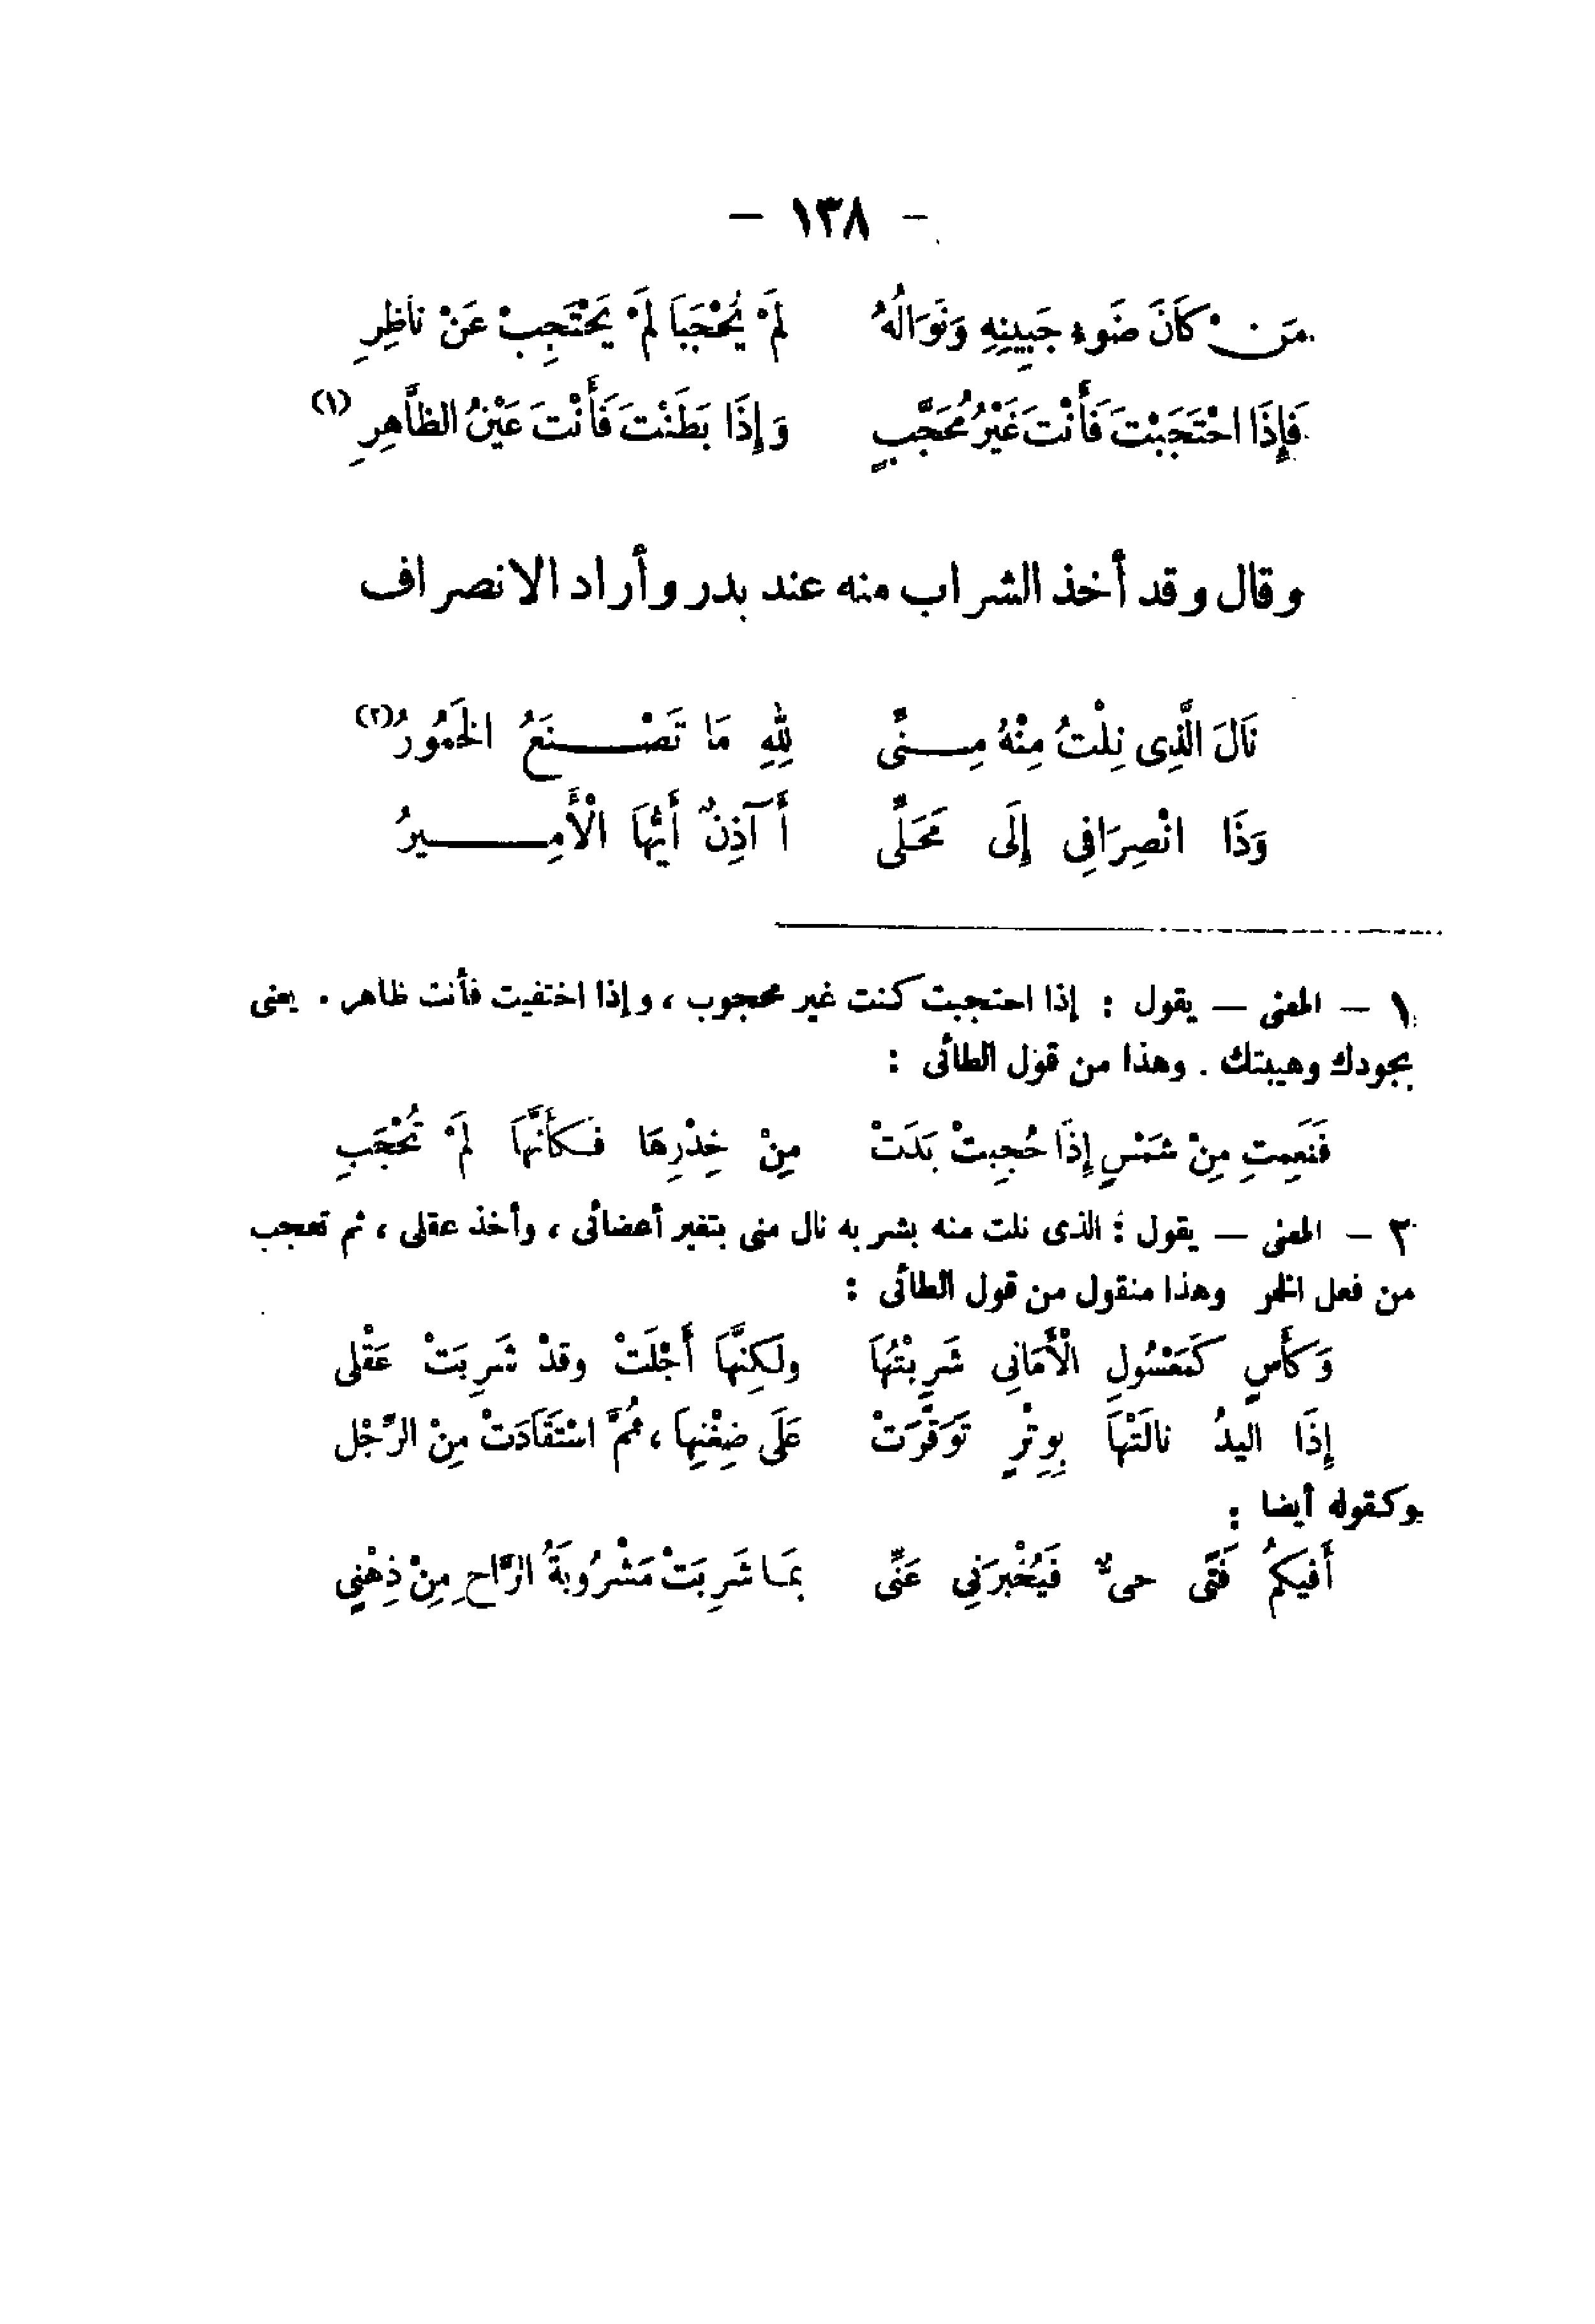 - ١٣٨ -
مَنْ كَانَ ضَوءُ جَبِينِهِ وَنَوَالُهُ لَمْ يُحْجَبَا لَمْ يَحْتَجِبْ عَنْ ناظِرِ
فَإِذَا احْتَجَبْتَ فَأَنْتَ غَيْرُ مُحَجَّبٍ وَإِذَا بَطَنْتَ فَأَنْتَ عَيْنُ الظَّاهِرِ (١)
وقال وقد أخذ الشراب منه عند بدر وأراد الانصراف
نَالَ الَّذِى نِلْتُ مِنْهُ مِــنِّى لِلهِ مَا تَصْــنَعُ الْخَمُورُ (٢)
وَذَا انْصِرَافِى إِلَى مَحَلِّى أَآذِنٌ أَيُّهَا الْأَمِــيرُ
١ – المعنى – يقول : إذا احتجبت كنت غير محجوب ، وإذا اختفيت فأنت ظاهر . يعنى
بجودك وهيبتك . وهذا من قول الطائى :
فَنَعِمتِ مِنْ شَمْسٍ إِذَا حُجِبتْ بَدَتْ مِنْ خِدْرِهَا فَكأَنَّهَا لَمْ تُحْجَبِ
٢ – المعنى – يقول : الذى نلت منه بشربه نال منى بتغير أعضائى ، وأخذ عقلى ، ثم تعجب
من فعل الخمر وهذا منقول من قول الطائى :
وَكَأْسٍ كَمَعْسُولِ الْأَمَانِى شَرِبْتُهَا ولَكِنَّهَا أَجْلَتْ وقدْ شَرِبَتْ عَقْلِى
إِذَا اليدُ نالَتْهَا بِوِتْرٍ تَوَقَّرَتْ عَلَى ضِغْنِهَا ، ثُمَّ اسْتَقَادَتْ مِنَ الرِّجْلِ
وكقوله أيضا :
أَفيكمُ فَتًى حىٌّ فَيُخْبرَنِى عَنِّى بمَا شَرِبَتْ مَشْرُوبَةُ الرَّاحِ مِنْ ذِهْنِي